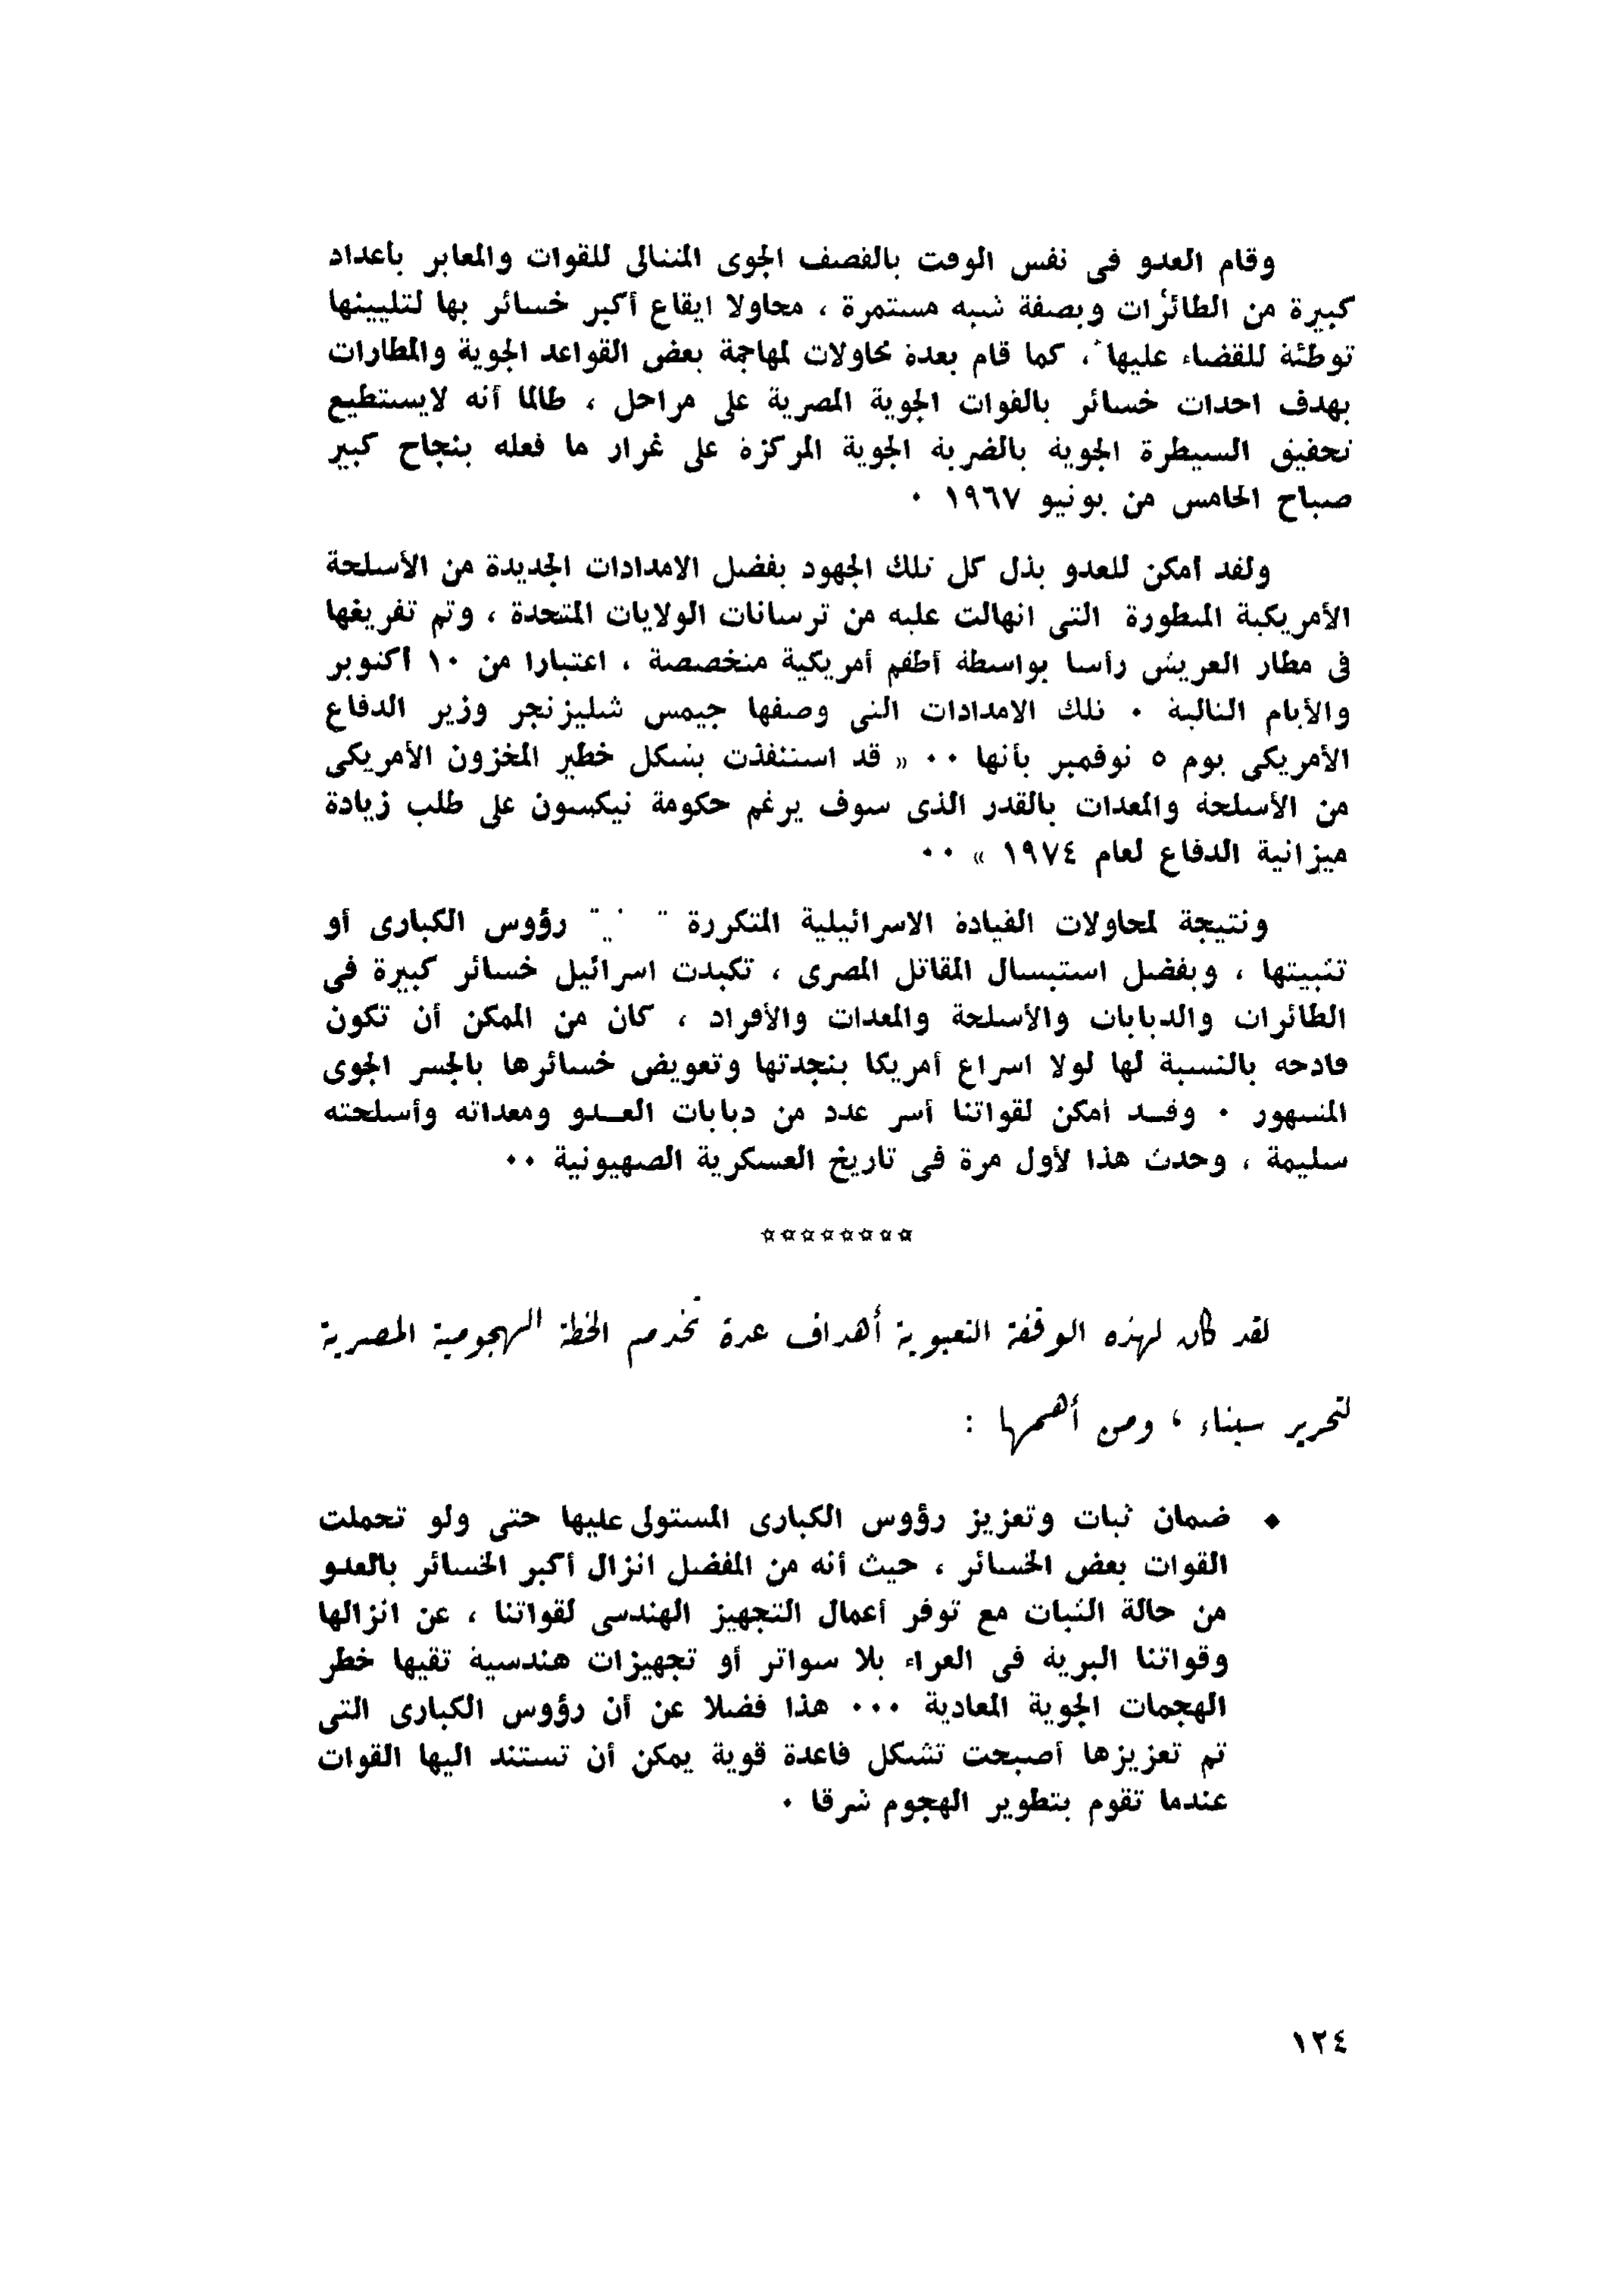 وقام العدو فى نفس الوقت بالقصف الجوى المتتالى للقوات والمعابر بأعداد
كبيرة من الطائرات وبصفة شبه مستمرة ، محاولا ايقاع أكبر خسائر بها لتليينها
توطئة للقضاء عليها ، كما قام بعدة محاولات لمهاجمة بعض القواعد الجوية والمطارات
بهدف احداث خسائر بالقوات الجوية المصرية على مراحل ، طالما أنه لايستطيع
تحقيق السيطرة الجوية بالضربة الجوية المركزة على غرار ما فعله بنجاح كبير
صباح الخامس من يونيو ١٩٦٧ ٠
ولقد أمكن للعدو بذل كل تلك الجهود بفضل الامدادات الجديدة من الأسلحة
الأمريكية المتطورة التى انهالت عليه من ترسانات الولايات المتحدة ، وتم تفريغها
فى مطار العريش رأسا بواسطة أطقم أمريكية متخصصة ، اعتبارا من ١٠ أكتوبر
والأيام التالية ٠ تلك الامدادات التى وصفها جيمس شليزنجر وزير الدفاع
الأمريكى يوم ٥ نوفمبر بأنها ٠٠ « قد استنفذت بشكل خطير المخزون الأمريكى
من الأسلحة والمعدات بالقدر الذى سوف يرغم حكومة نيكسون على طلب زيادة
ميزانية الدفاع لعام ١٩٧٤ » ٠٠
ونتيجة لمحاولات القيادة الاسرائيلية المتكررة رؤوس الكبارى أو
تثبيتها ، وبفضل استبسال المقاتل المصرى ، تكبدت اسرائيل خسائر كبيرة فى
الطائرات والدبابات والأسلحة والمعدات والأفراد ، كان من الممكن أن تكون
فادحه بالنسبة لها لولا اسراع أمريكا بنجدتها وتعويض خسائرها بالجسر الجوى
المشهور ٠ وقـد أمكن لقواتنا أسر عدد من دبابات العـدو ومعداته وأسلحته
سليمة ، وحدث هذا لأول مرة فى تاريخ العسكرية الصهيونية ٠٠
********
لقد كان لهذه الوقفة التعبوية أهداف عدة تخدم الخطة الهجومية المصرية
لتحرير سيناء ، ومن أهمها :
◆ ضمان ثبات وتعزيز رؤوس الكبارى المستولى عليها حتى ولو تحملت
القوات بعض الخسائر ، حيث أنه من المفضل انزال أكبر الخسائر بالعدو
من حالة الثبات مع توفر أعمال التجهيز الهندسى لقواتنا ، عن انزالها
وقواتنا البرية فى العراء بلا سواتر أو تجهيزات هندسية تقيها خطر
الهجمات الجوية المعادية ٠٠٠ هذا فضلا عن أن رؤوس الكبارى التى
تم تعزيزها أصبحت تشكل قاعدة قوية يمكن أن تستند اليها القوات
عندما تقوم بتطوير الهجوم شرقا ٠
١٢٤